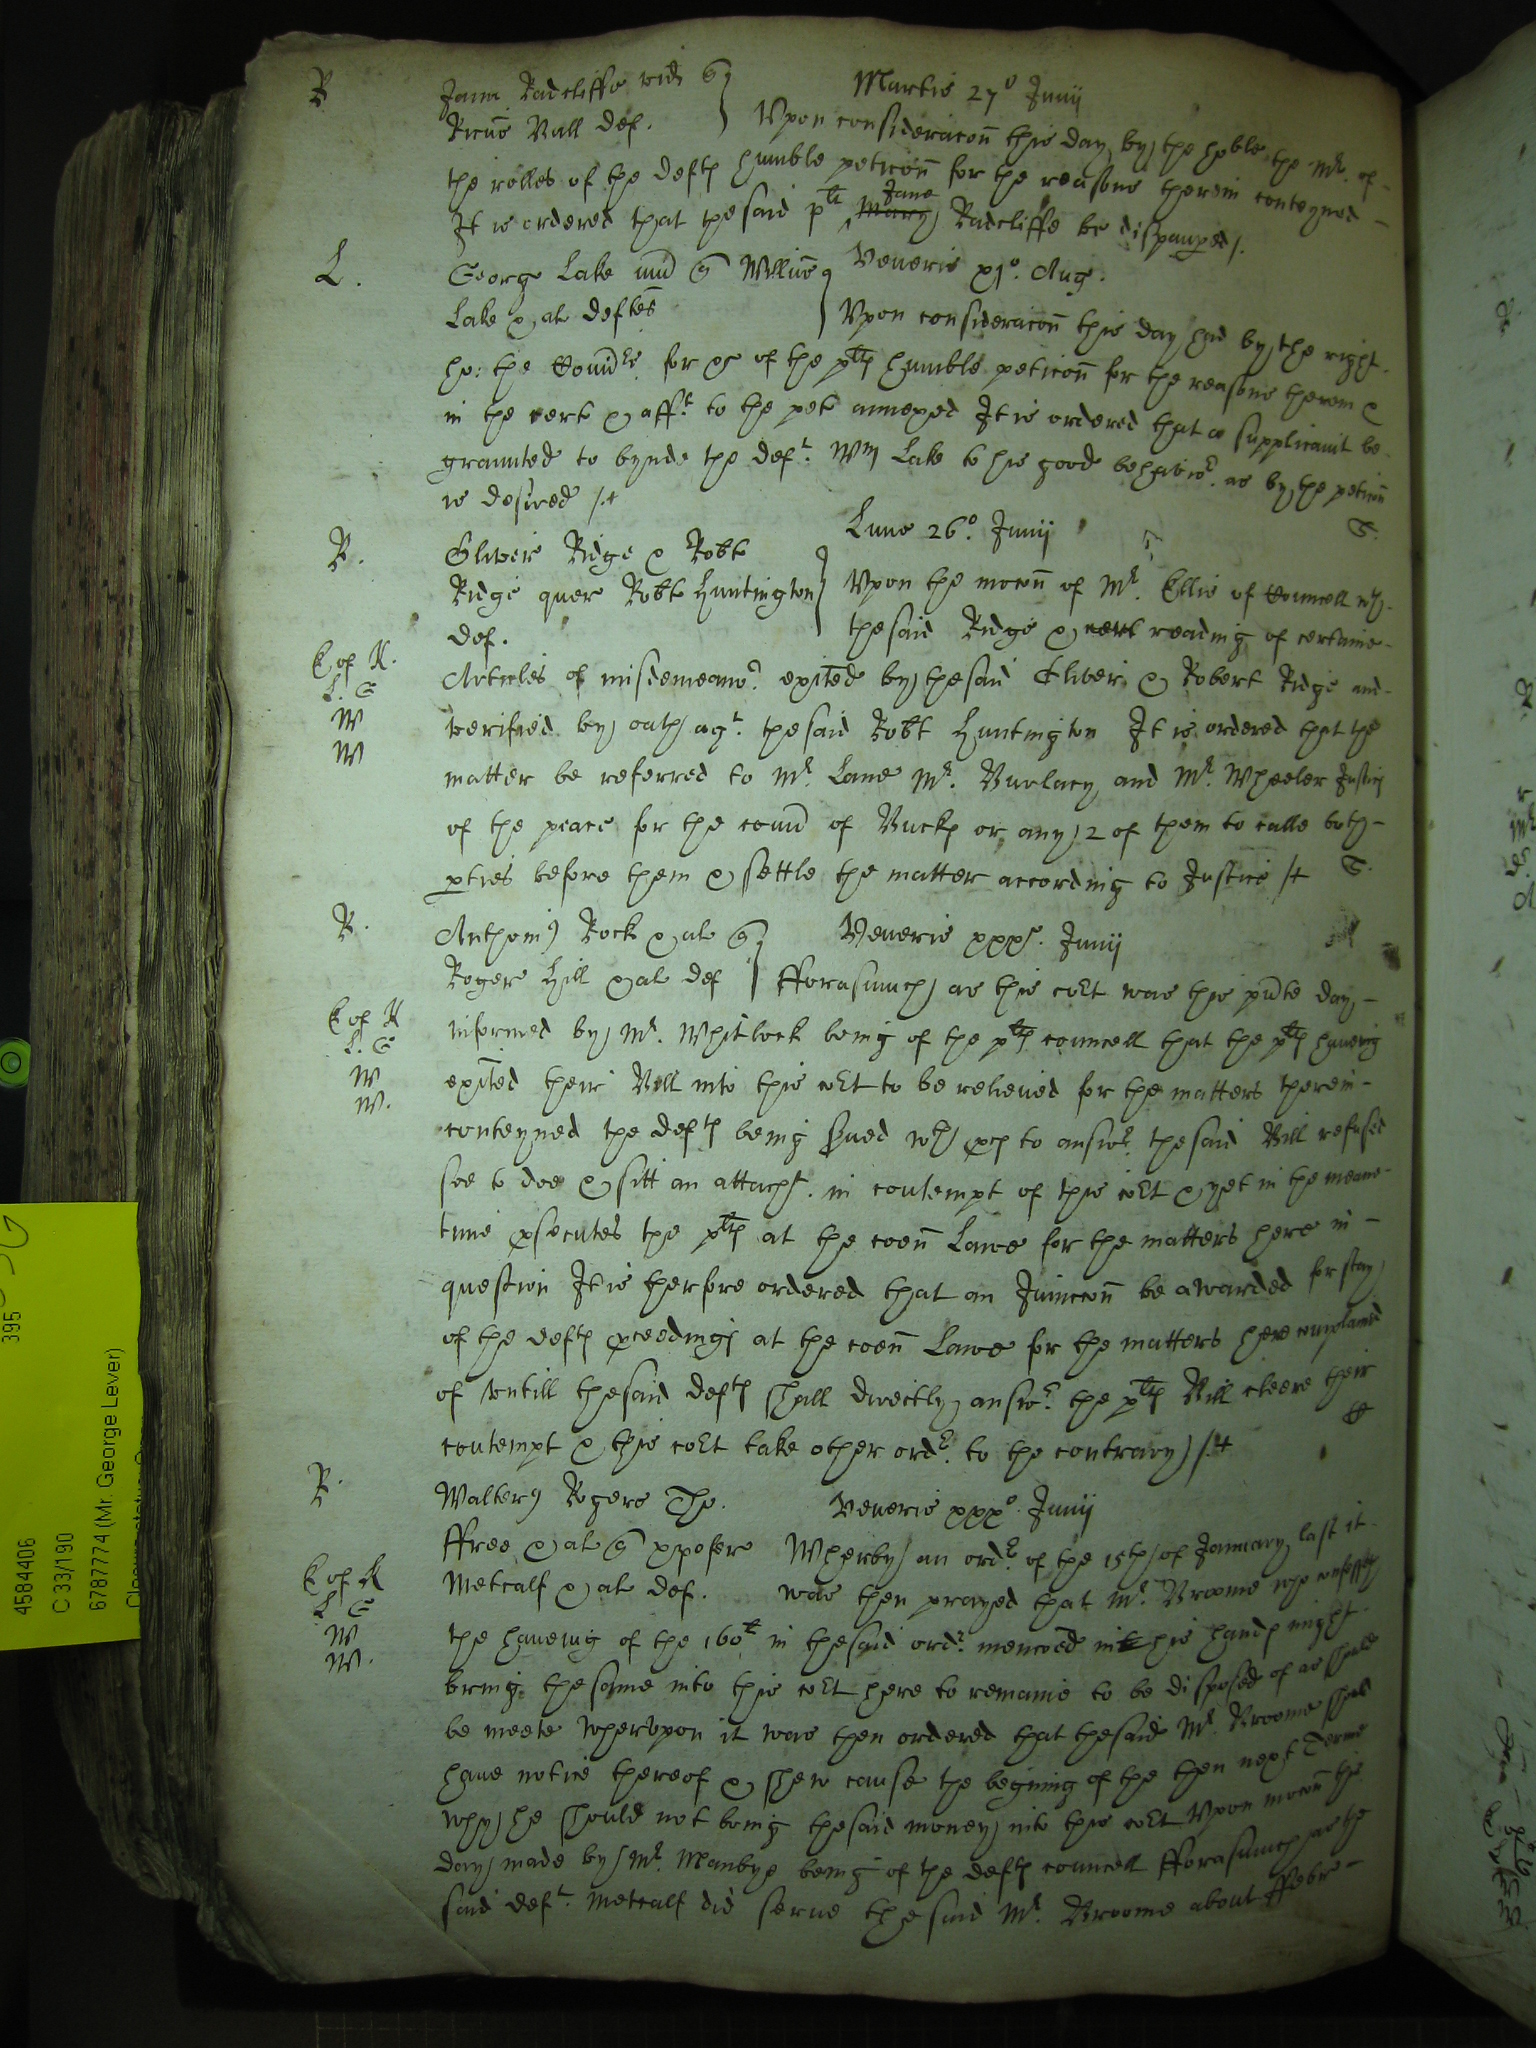 R Jana Radcliffe vid q Martis 27o Junij
Ricus Bull def. Upon consideracon this day by the hoble the Mr. of
the rolles of the defts humble peticon for the reasons therein conteyned
It is ordered that the said plt Mary Jane Radcliffe be dispaupered /.
L. George Lake q Willus Veneris xjo. Aug.
Lake & al deftes Upon consideracon this day had by the right
ho: the Comrs. for &c of the plts humble peticon for the reasons therein &
in the cert & afft. to the pet annexed It is ordered that a supplicavit be
graunted to bynde the deft. Wm Lake to his good behavior. as by the peticon
is desired /.
R. Oliver Ridge & Robt Lune 26o. Junij
Ridge quer Robt Huntington Upon the mocon of Mr. Ellis of Councell wth
def. the said Ridge & reading of certaine
C of K. Articles of misdemeanor. exited by the said Oliver & Robert Ridge and
L. G verified by oath agt. the said Robt Huntington It is ordered that the
W
W matter be referred to Mr. Lane Mr. Burlacy and Mr. Wheeler Justices
of the peace for the coun of Bucks or any 2 of them to calle both
pties before them & settle the matter according to Justice /
R. Anthoni9 Rock & al q Veneris xxxo. Junij
Roger Hill & al def fforasmuch as this coLt was this pnte day
C of K informed by Mr. Whitlock being of the plts councell that the plts haveing
L. G
W exited their Bill into this coLt to be relieved for the matters therein
W. conteyned the defts being served wth pces to answr. the said Bill refused
soe to doe & sitt an attachmt. in contempt of this coLt & yet in the meane
time psecutes the plts at the coen Lawe for the matters here in
question It is therfore ordered that an Iniuccon be awarded for stay
of the defts pceedings at the coen Lawe for the matters here complained
of untill the said defts shall directly answr. the plts Bill cleere their
contempt & this coLt take other ordr. to the contrary /.
R. Walter9 Rogers Tho. Veneris xxxo. Junij
ffree & al q xpofere Wherby an ordr. of the 15th of January last it
C of K Metcalf & al def. was then prayed that Mr. Broome who confesseth
L. G
W the haveing of the 160l in the said ordr. mencoed in his hands might
W. bring the same into this coLt here to remaine to be disposed of as should
be meete Wherupon it was then ordered that the said Mr. Broome should
have notice thereof & shew cause the begining of the then next Terme
why he should not bring the said money into this coLt Upon mocon this
day made by Mr. Manbye being of the defts councell fforasmuch as the
said deft. Metcalf did serve the said Mr. Broome about ffebr
395
4584406
C 33/190
6787774 (Mr. George Lever)